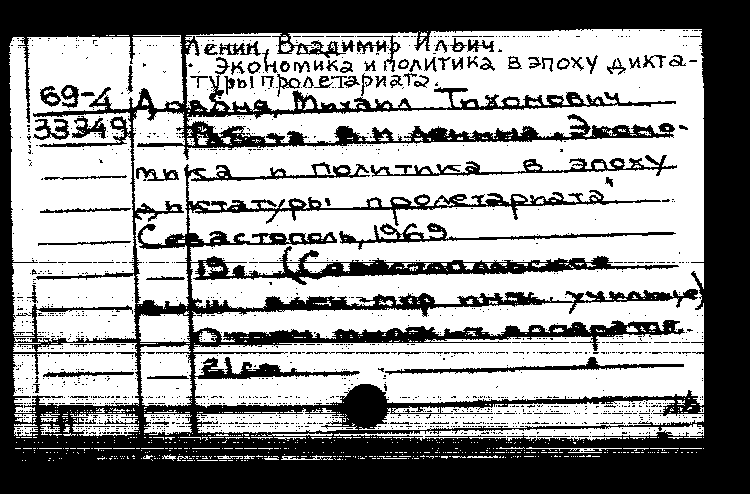 Ленин, Владимир Ильич.
Экономика и политика в эпоху дикта-
туры пролетариата.
69-4
33349
Довбня, Михаил Тихонович
Работа В.И. Ленина "Эконо-
мика и политика в эпоху
диктатуры пролетариата"
Севастополь, 1969.
19 с. (Севастопольское
высш. воен-мор инж. училище)
Отпеч. множит. аппаратом.
21 см.